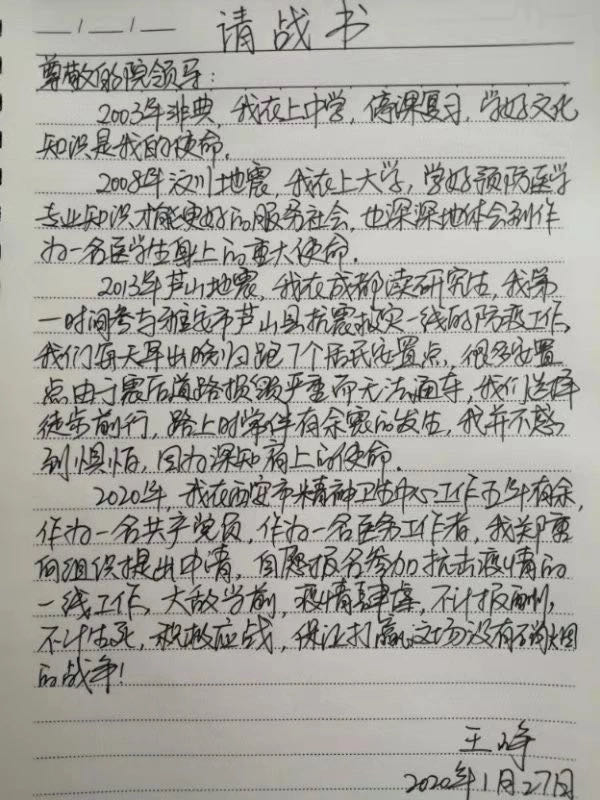 请战书
尊敬的院领导：
2003年非典，我在上中学，停课复习，学好文化
知识是我的使命。
2008年汶川地震，我在上大学，学好预防医学
专业知识才能更好的服务社会，也深深地体会到作
为一名医学生身上的重大使命。
2013年芦山地震，我在成都读研究生，我第
一时间参与雅安市芦山县抗震救灾一线的防疫工作，
我们每天早出晚归跑7个居民安置点，很多安置
点由于震后道路损毁严重而无法通车，我们选择
徒步前行，路上时常伴有余震的发生，我并不感
到惧怕，因为深知肩上的使命。
2020年，我在西安市精神卫生中心工作五年有余，
作为一名共产党员，作为一名医务工作者，我郑重
向组织提出申请，自愿报名参加抗击疫情的
一线工作，大敌当前，疫情肆虐，不计报酬，
不计生死，积极应战，保证打赢这场没有硝烟
的战争！
王峰
2020年1月27日